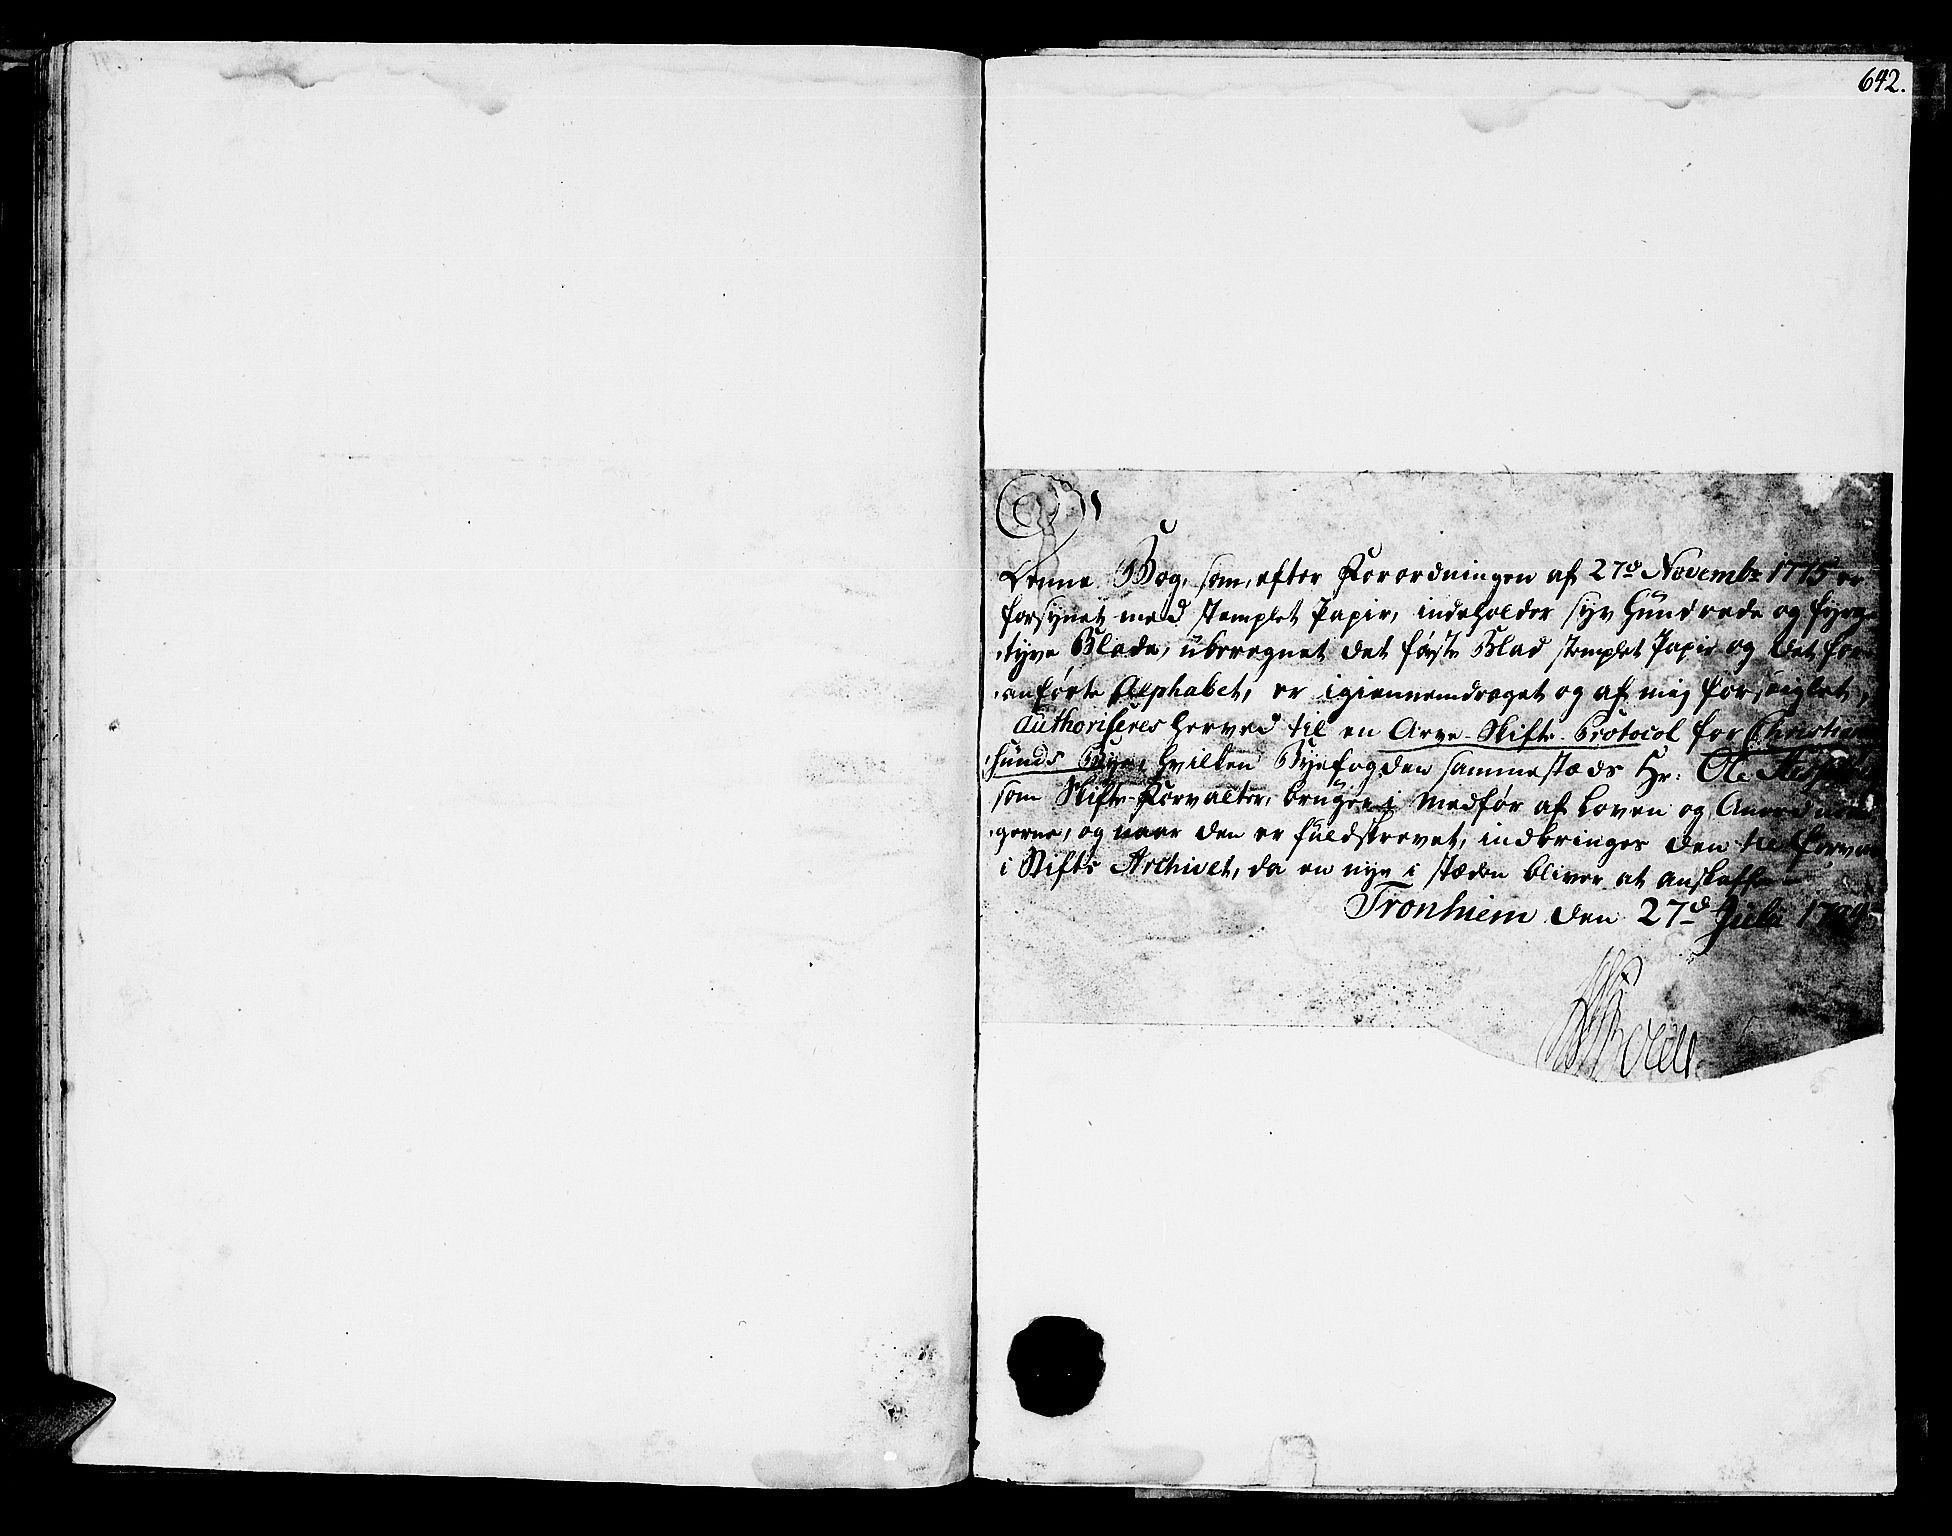 642.
Denne Bog, som, efter Forordningen af 27d Novembr 1775 er
forsynet med stemplet Papir, indeholder syv hundrede og fyrge
tyve Blade, uberegnet det første Blad stemplet Papir og det for
anførte Alphabet, er igiennemdraget og af mig forseiglet,
authoriseres herved til en Arve-Skifte-Protocol for Christian
sunds Bye, hvilken Byefogden sammestæds Hr: Ole
som Skifte-Forvalter, bruger i Medfør af Loven og Anordnin
gerne, og naar den er fuldskrevet, indbringes den til Forvar
i Stifts Archivet, da en nye i stæden bliver at anskaffe
Tronhiem den 27d Julii